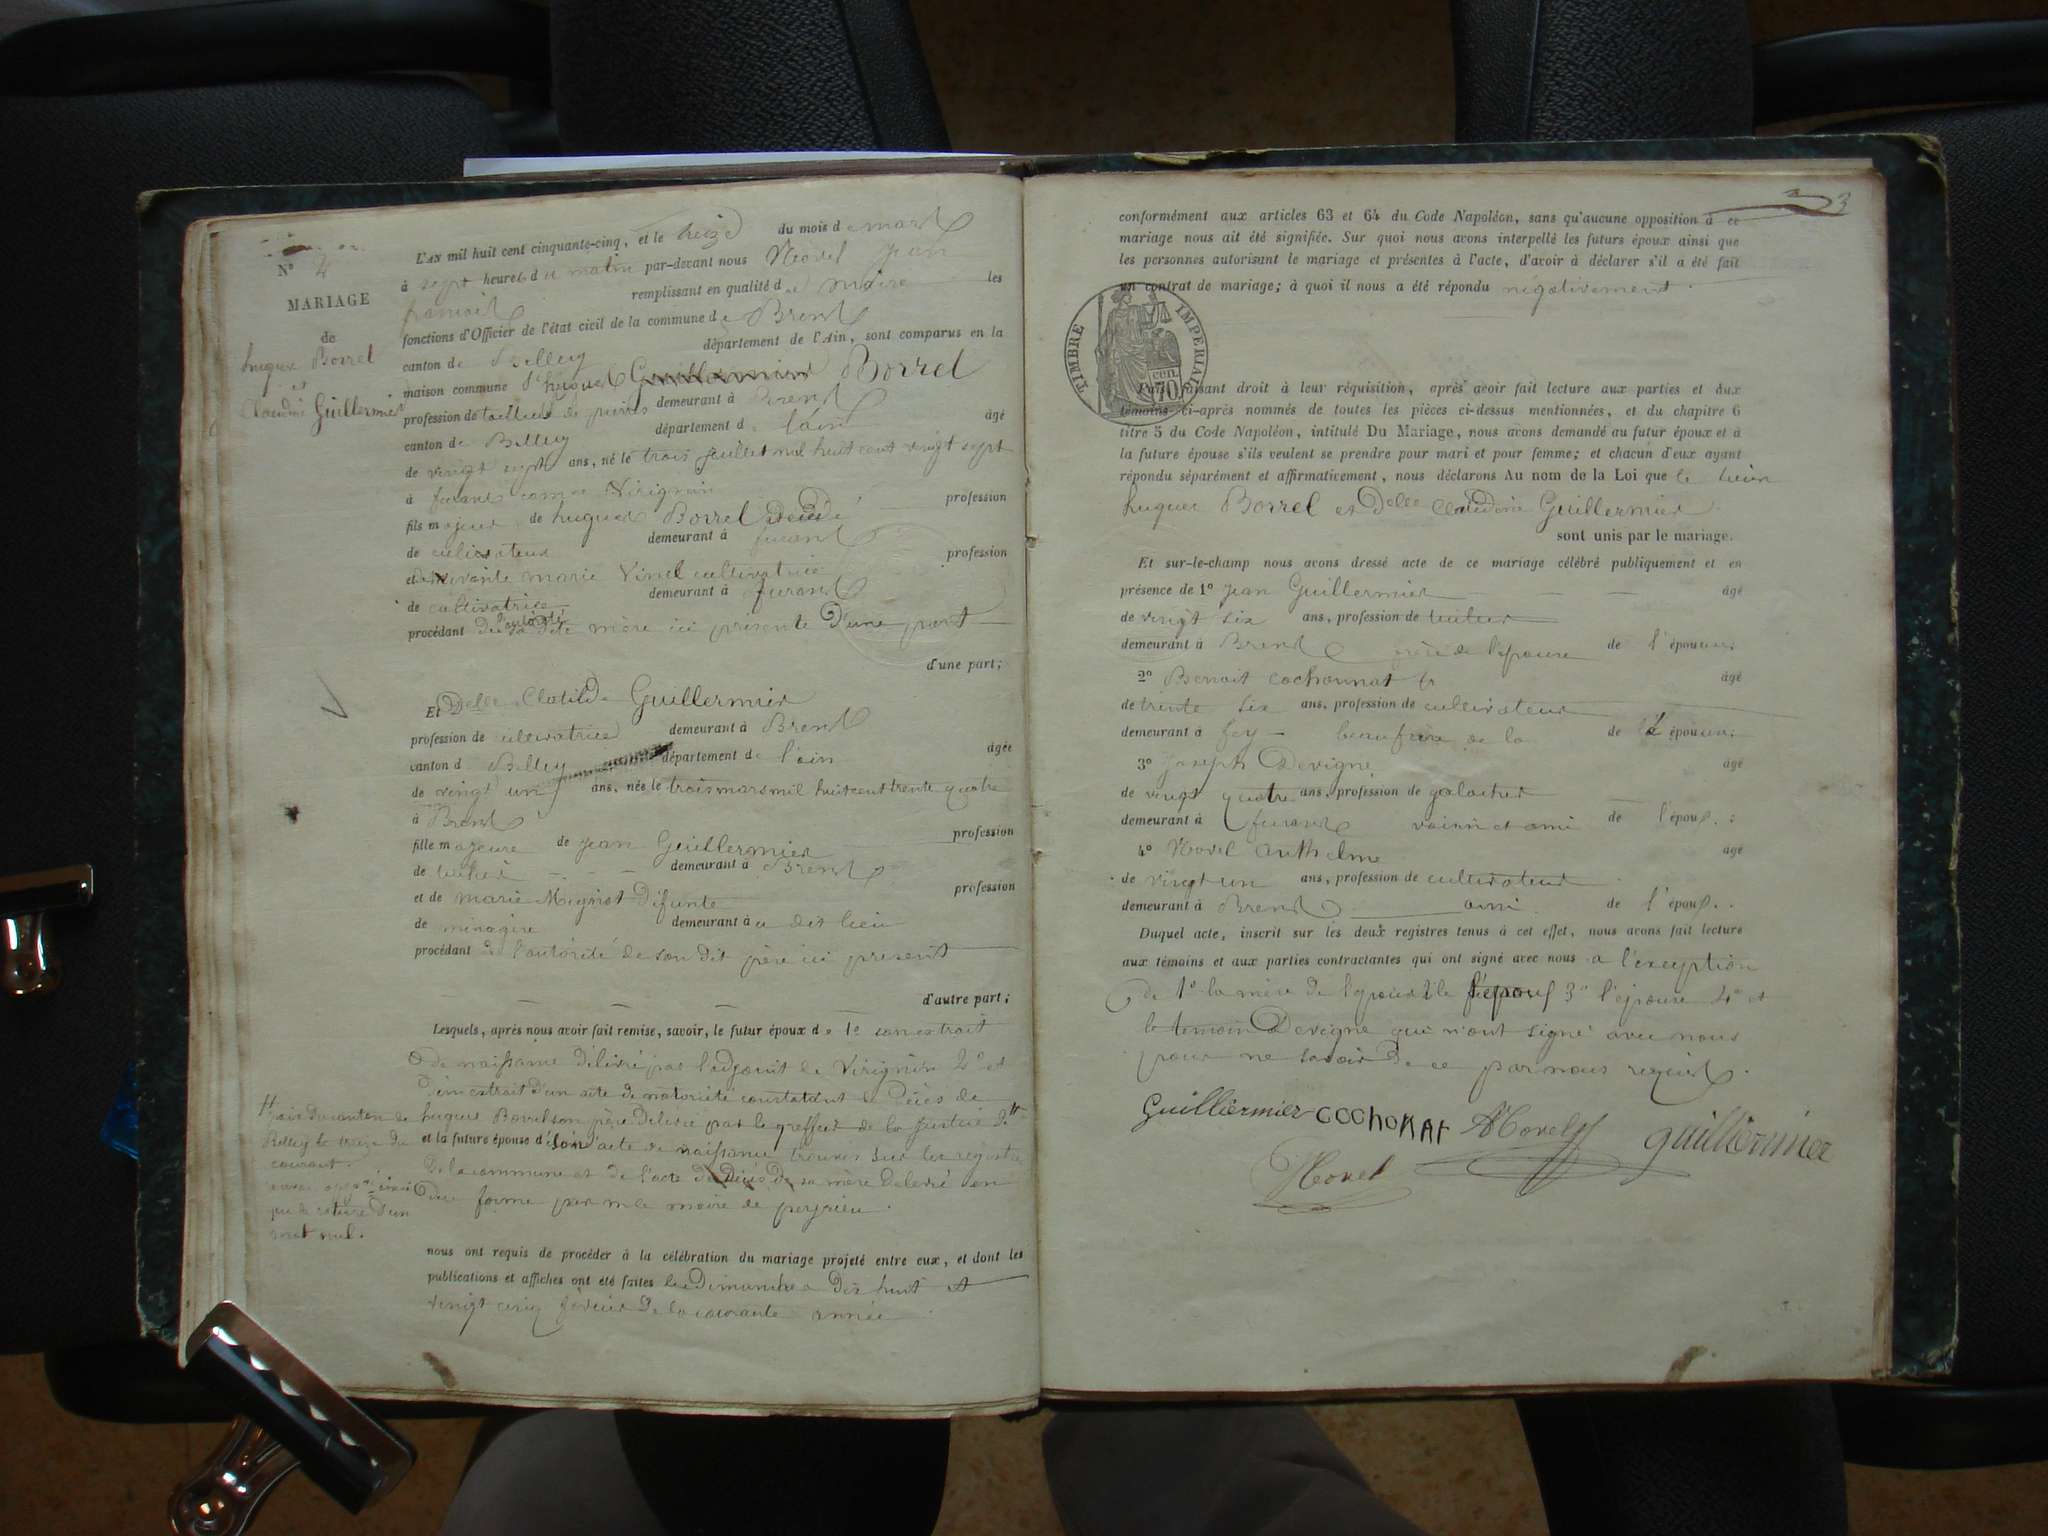 N° 4
MARIAGE
de
hugues Borrel
et
Claudine Guillermier
L'AN mil huit cent cinquante-cinq, et le treize du mois de mars
à sept heures du matin par-devant nous Hovel jean
françois remplissant en qualité de maire les
fonctions d'Officier de l'état civil de la commune de Brens
canton de Belley département de l'Ain, sont comparus en la
maison commune Sr hugues Guillermier Borrel
profession de tailleur de pierres demeurant à Brens
canton de Belley département de l'ain âgé
de vingt sept ans, né le trois juillet mil huit cent vingt sept
à furans comne Virignin
fils majeur de hugues Borrel décédé profession
de cultivateur demeurant à furans
et vivante marie Vinel cultivatrice profession
de cultivatrice demeurant à furans
procédant de l'autorité de sa dite mère ici présente D'une part
d'une part;
Et Delle Clotilde Guillermier
profession de cultivatrice demeurant à Brens
canton d Belley département de l'ain âgée
de vingt un ans, née le trois mars mil huit cent trente quatre
à Brens
fille majeure de jean Guillermier profession
de tuilier demeurant à Brens
et de marie Mognot Défunte profession
de ménagère demeurant à u dit lieu
procédant de l'autorité de son dit père ici présent
d'autre part;
Lesquels, après nous avoir fait remise, savoir, le futur époux de 1° son extrait
de naissance délivré par l'adjoint de Virignin 2° et
d'un extrait d'un acte de notoriété constatant le Décès de
hugues Borrel son père Délivré par le greffier de la justice de
et la future épouse d e son acte de naissance trouvés sur les registres
de la commune et de l'acte de Décès de sa mère Délivré en
due forme par mr le maire de peyrieu.
paix du canton de
Belley le treize du
courant.
mot nul.
nous ont requis de procéder à la célébration du mariage projeté entre eux, et dont les
publications et affiches ont été faites les Dimanches Dix huit et
vingt cinq février de la courante année.
3
conformément aux articles 63 et 64 du Code Napoléon, sans qu'aucune opposition à ce
mariage nous ait été signifiée. Sur quoi nous avons interpellé les futurs époux ainsi que
les personnes autorisant le mariage et présentes à l'acte, d'avoir à déclarer s'il a été fait
un contrat de mariage; à quoi il nous a été répondu négativement.
TIMBRE IMPERIAL
70 cen.
faisant droit à leur réquisition, après avoir fait lecture aux parties et aux
témoins ci-après nommés de toutes les pièces ci-dessus mentionnées, et du chapitre 6
titre 5 du Code Napoléon, intitulé Du Mariage, nous avons demandé au futur époux et à
la future épouse s'ils veulent se prendre pour mari et pour femme; et chacun d'eux ayant
répondu séparément et affirmativement, nous déclarons Au nom de la Loi que le sieur
hugues Borrel et Delle Claudine Guillermier
sont unis par le mariage.
Et sur-le-champ nous avons dressé acte de ce mariage célébré publiquement et en
présence de 1° jean Guillermier âgé
de vingt six ans, profession de
demeurant à Brens frère de l'épouse de l'épouse;
2° Benoit Cochonnat âgé
de trente six ans, profession de cultivateur
demeurant à fey beaufrère de la de l'épouse;
3° joseph Devigne âgé
de vingt quatre ans, profession de galocher
demeurant à furans voisin et ami de l'époux;
4° Hovel Anthelme âgé
de vingt un ans, profession de cultivateur
demeurant à Brens ami de l'époux.
Duquel acte, inscrit sur les deux registres tenus à cet effet, nous avons fait lecture
aux témoins et aux parties contractantes qui ont signé avec nous à l'exception
de 1° la mère de l'époux 2 le l'époux 3° l'épouse 4° et
le temoin Devigne qui n'ont signé avec nous
pour ne savoir de ce par nous requis.
Guilliermier COChONAT AHovel guilliermier
Hovel